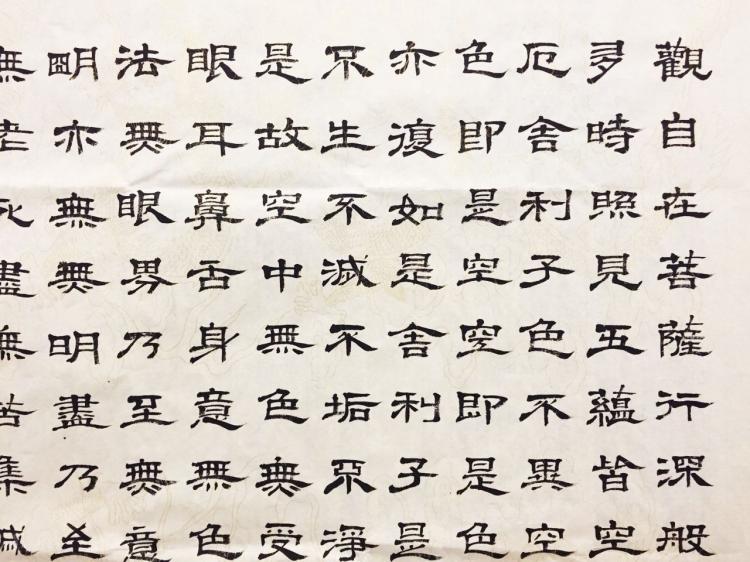 觀自在菩薩行深般
多時照見五蘊皆空
厄舍利子色不異空
色即是空空即是色
亦復如是舍利子是
不生不滅不垢不淨
是故空中無色無受
眼耳鼻舌身意無色
法無眼界乃至無意
明亦無無明盡乃至
無老死盡無苦集滅